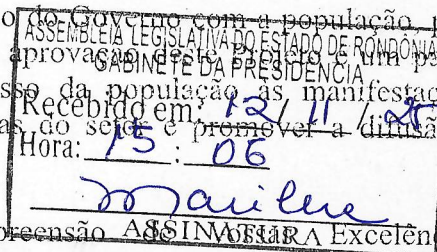 do Governo com a população,
ASSEMBLEIA LEGISLATIVA DO ESTADO DE RONDÔNIA
aprovação deste Projeto é um
GABINETE DA PRESIDÊNCIA
da população as manifestaç
Recebido em: 12/11/25
as do setor e promover a difusã
Hora: 15:06
Marilene
preensão de Vossas Excelên
ASSINATURA